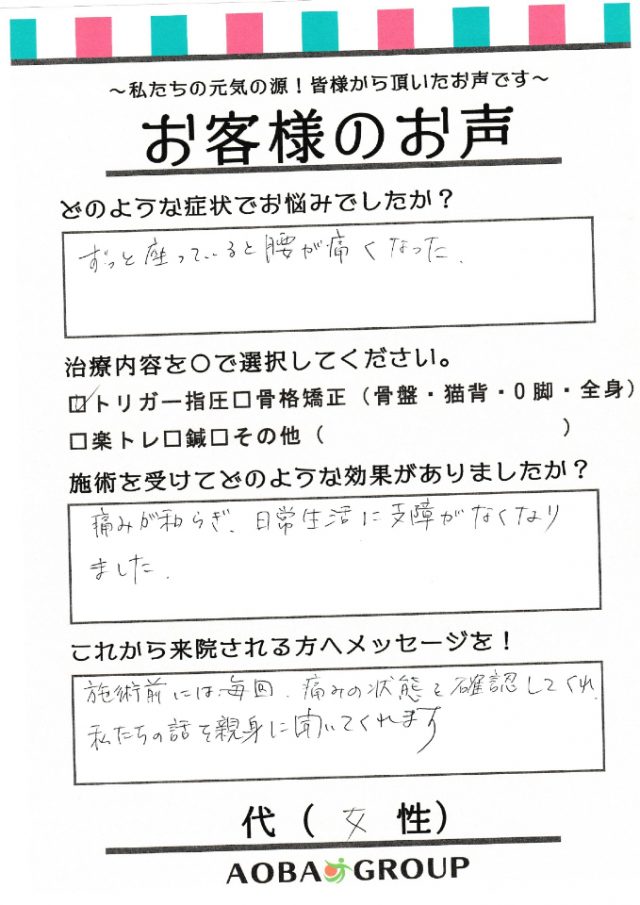 ～私たちの元気の源！皆様から頂いたお声です～
お客様のお声
どのような症状でお悩みでしたか？
ずっと座っていると腰が痛くなった.
治療内容を〇で選択してください。
☑トリガー指圧□骨格矯正（骨盤・猫背・O脚・全身）
□楽トレ□鍼□その他（　　　　　　　　　　）
施術を受けてどのような効果がありましたか？
痛みが和らぎ、日常生活に支障がなくなり
ました.
これから来院される方へメッセージを！
施術前には毎回、痛みの状態を確認してくれ、
私たちの話を親身に聞いてくれます
代（女性）
AOBA GROUP